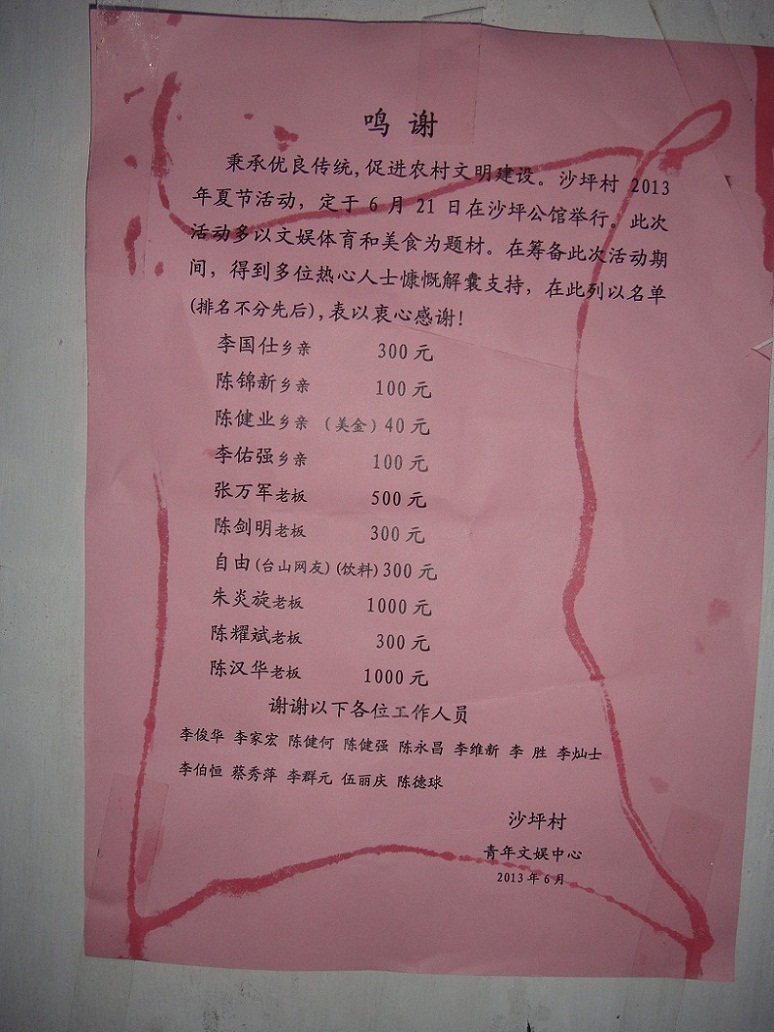 鸣谢
秉承优良传统,促进农村文明建设。沙坪村 2013
年夏节活动,定于 6 月 21 日在沙坪公馆举行。此次
活动多以文娱体育和美食为题材。在筹备此次活动期
间,得到多位热心人士慷慨解囊支持,在此列以名单
(排名不分先后),表以衷心感谢!
李国仕乡亲 300 元
陈锦新乡亲 100 元
陈健业乡亲 (美金) 40 元
李佑强乡亲 100 元
张万军老板 500 元
陈剑明老板 300 元
自由(台山网友)(饮料)300 元
朱炎旋老板 1000 元
陈耀斌老板 300 元
陈汉华老板 1000 元
谢谢以下各位工作人员
李俊华 李家宏 陈健何 陈健强 陈永昌 李维新 李 胜 李灿士
李伯恒 蔡秀萍 李群元 伍丽庆 陈德球
沙坪村
青年文娱中心
2013 年 6 月